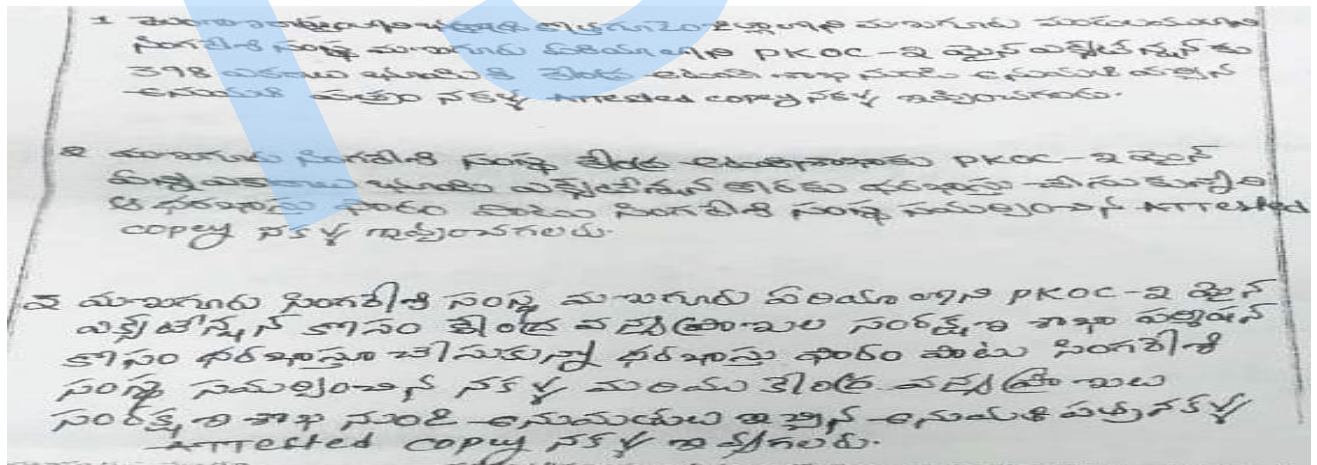 1 తెలంగాణ రాష్ట్రం లోని భద్రాద్రి కొత్తగూడెం జిల్లా లోని మణుగూరు మండలములోని
సింగరేణి సంస్థ మణుగూరు ఏరియా లోని PKOC-2 మైన్ ఎక్స్టెన్షన్ కు
398 ఎకరాలు భూమికి కేంద్ర అటవీ శాఖ నుండి అనుమతి ఇచ్చిన
అనుమతి పత్రం నకళ్ళు Attested copey నకళ్ళు ఇప్పించగలరు.
2 మణుగూరు సింగరేణి సంస్థ కేంద్ర అటవీశాఖకు PKOC-2 మైన్
ఎకరాలు భూమి ఎక్స్టెన్షన్ కొరకు దరఖాస్తు చేసుకున్న
ఆ దరఖాస్తు ఫారం పాటు సింగరేణి సంస్థ సమర్పించిన ATTested
copey నకళ్ళు ఇప్పించగలరు.
3 మణుగూరు సింగరేణి సంస్థ మణుగూరు ఏరియా లోని PKOC-2 మైన్
ఎక్స్టెన్షన్ కోసం కేంద్ర వన్యప్రాణుల సంరక్షణ శాఖ పర్మిషన్
కోసం దరఖాస్తు చేసుకున్న దరఖాస్తు ఫారం పాటు సింగరేణి
సంస్థ సమర్పించిన నకళ్ళు మరియు కేంద్ర వన్యప్రాణులు
సంరక్షణ శాఖ నుండి అనుమతులు ఇచ్చిన అనుమతి పత్ర నకళ్ళు
ATTested copey నకళ్ళు ఇవ్వగలరు.